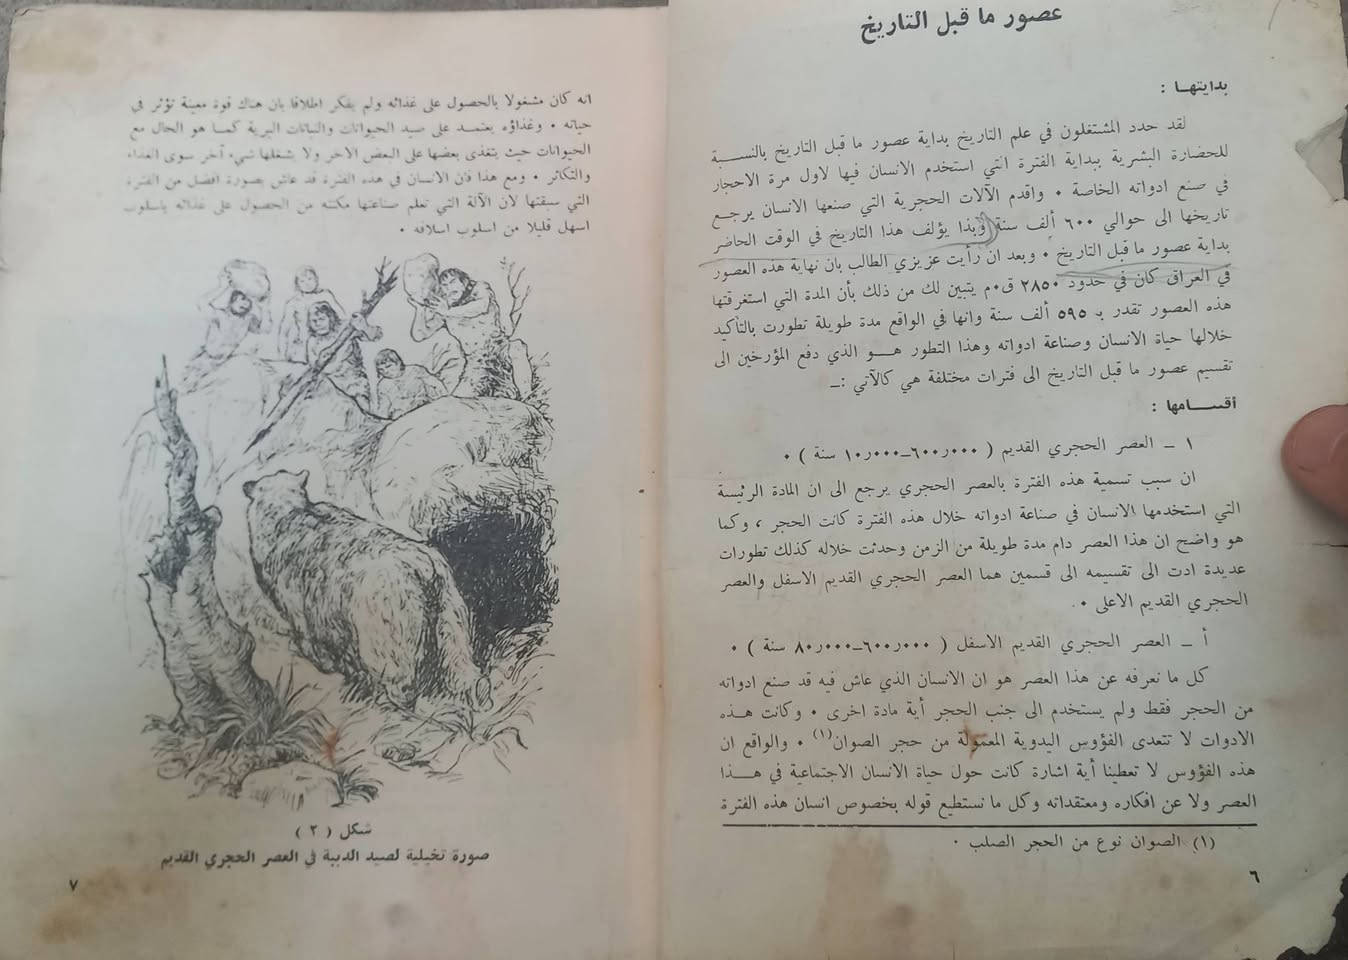 عصور ما قبل التاريخ
بدايتهـا :
لقد حدد المشتغلون في علم التاريخ بداية عصور ما قبل التاريخ بالنسبـة
للحضارة البشرية ببداية الفترة التي استخدم الانسان فيها لاول مرة الاحجار
في صنع ادواته الخاصة ٠ واقدم الآلات الحجرية التي صنعها الانسان يرجـع
تاريخها الى حوالي ٦٠٠ ألف سنة وبذا يؤلف هذا التاريخ في الوقت الحاضر
بداية عصور ما قبل التاريخ ٠ وبعد ان رأيت عزيزي الطالب بان نهاية هذه العصور
في العراق كان في حدود ٢٨٥٠ ق٠م يتبين لك من ذلك بأن المدة التي استغرقتها
هذه العصور تقدر بـ ٥٩٥ ألف سنة وانها في الواقع مدة طويلة تطورت بالتأكيد
خلالها حياة الانسان وصناعة ادواته وهذا التطور هــو الذي دفع المؤرخين الى
تقسيم عصور ما قبل التاريخ الى فترات مختلفة هي كالآتي :ـ
أقسـامها :
١ ـ العصر الحجري القديم ( ٦٠٠ر٠٠٠ـ١٠ر٠٠٠ سنة ) ٠
ان سبب تسمية هذه الفترة بالعصر الحجري يرجع الى ان المادة الرئيسة
التي استخدمها الانسان في صناعة ادواته خلال هذه الفترة كانت الحجر ، وكما
هو واضح ان هذا العصر دام مدة طويلة من الزمن وحدثت خلاله كذلك تطورات
عديدة ادت الى تقسيمه الى قسمين هما العصر الحجري القديم الاسفل والعصر
الحجري القديم الاعلى ٠
أ ـ العصر الحجري القديم الاسفل ( ٦٠٠ر٠٠٠ـ٨٠ر٠٠٠ سنة ) ٠
كل ما نعرفه عن هذا العصر هو ان الانسان الذي عاش فيه قد صنع ادواته
من الحجر فقط ولم يستخدم الى جنب الحجر أية مادة اخرى ٠ وكانت هـذه
الادوات لا تتعدى الفؤوس اليدوية المعمولة من حجر الصوان(١) ٠ والواقع ان
هذه الفؤوس لا تعطينا أية اشارة كانت حول حياة الانسان الاجتماعية في هـذا
العصر ولا عن افكاره ومعتقداته وكل ما نستطيع قوله بخصوص انسان هذه الفترة
(١) الصوان نوع من الحجر الصلب ٠
٦
انه كان مشغولا بالحصول على غذائه ولم يفكر اطلاقا بان هناك قوة معينة تؤثر في
حياته ٠ وغذاؤه يعتمـد على صيد الحيوانات والنباتات البرية كمـا هو الحال مع
الحيوانات حيث يتغذى بعضها على البعض الاخر ولا يشغلها شيء آخر سوى الغذاء
والتكاثر ٠ ومع هذا فان الانسان في هذه الفترة قد عاش بصورة افضل من الفترة
التي سبقتها لان الآلة التي تعلم صناعتها مكنته من الحصول على غذائه باسلوب
اسهل قليلا من اسلوب اسلافه ٠
شكل ( ٢ )
صورة تخيلية لصيد الدببة في العصر الحجري القديم
٧